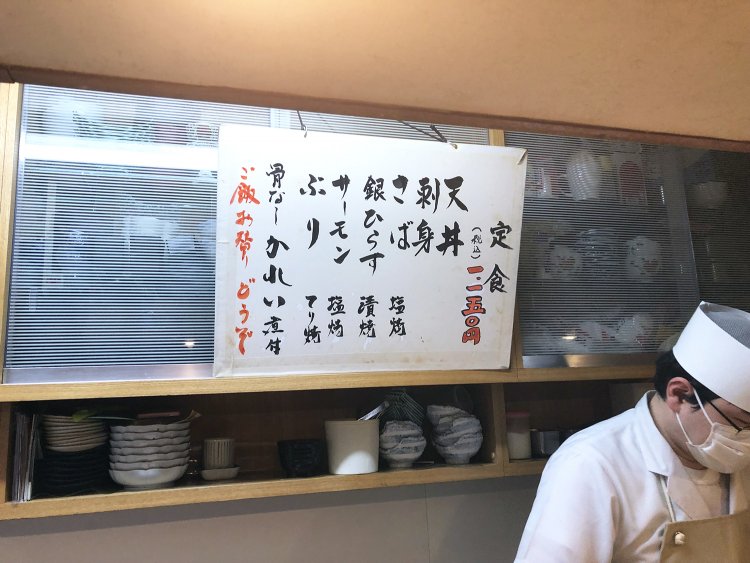 定食
(税込)
一二五〇円
天丼
刺身
さば 塩焼
銀ひらす 漬焼
サーモン 塩焼
ぶり てり焼
骨なしかれい 煮付
ご飯お替りどうぞ